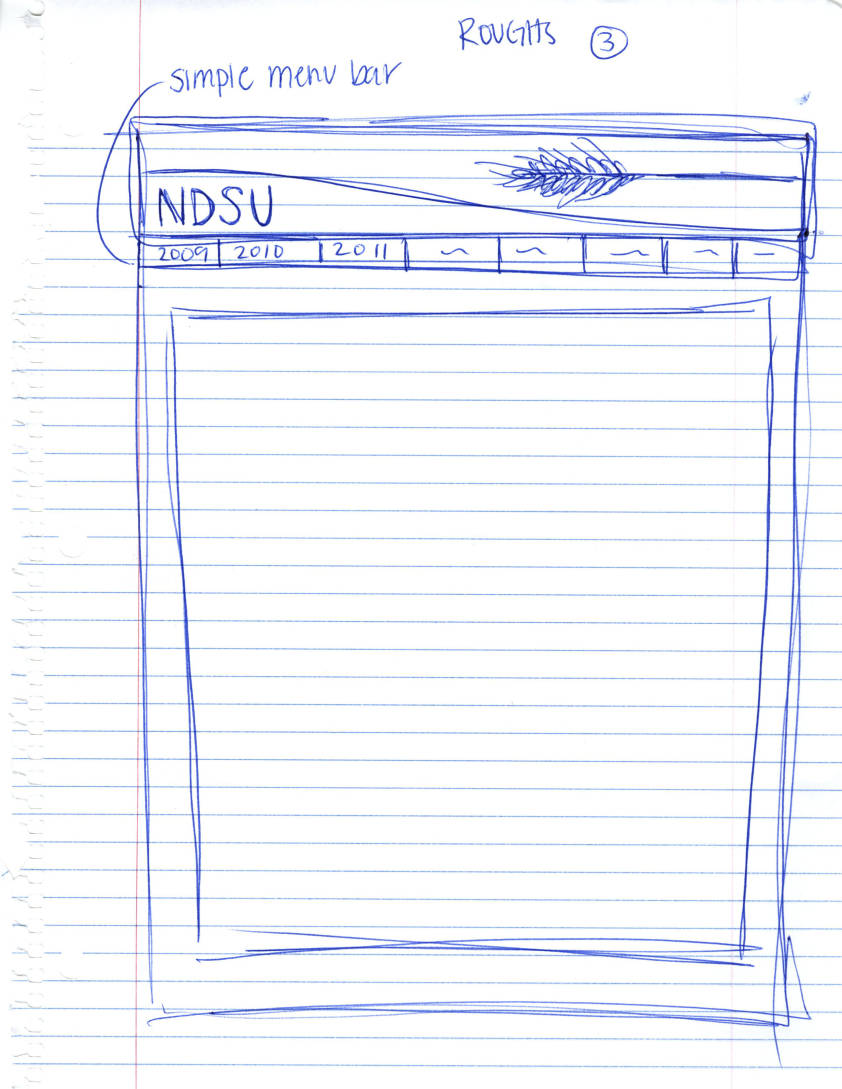 ROUGHS 3
simple menu bar
NDSU
2009 2010 2011